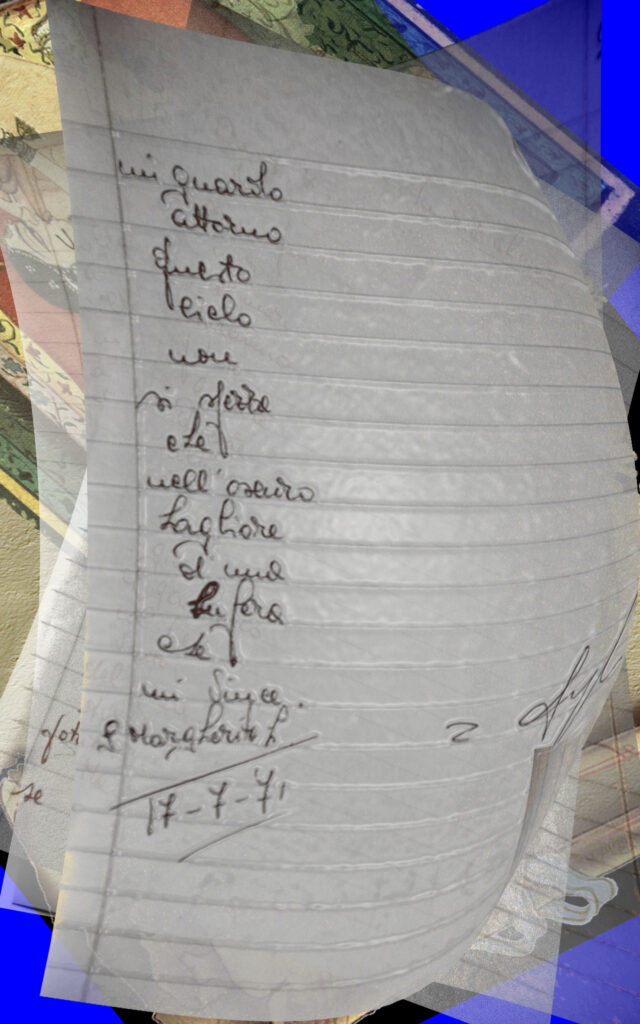 mi guardo
attorno
questo
cielo
non
si
che
nell'oscuro
bagliore
d'una
bufera
che
mi
S Margherita L =
17-7-71
se